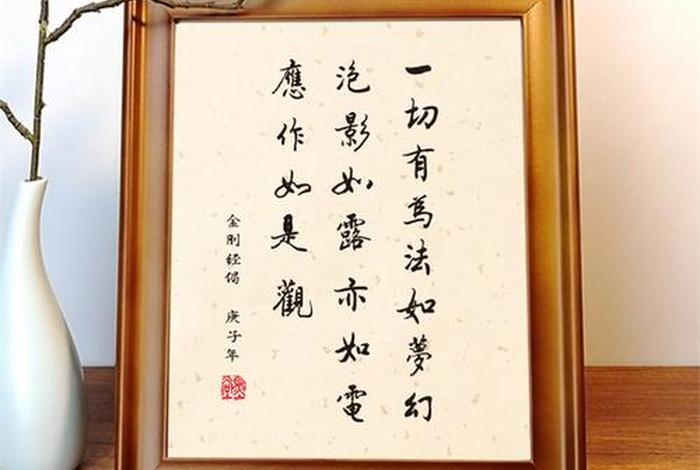 一切有為法如夢幻
泡影如露亦如電
應作如是觀
金剛經偈 庚子年